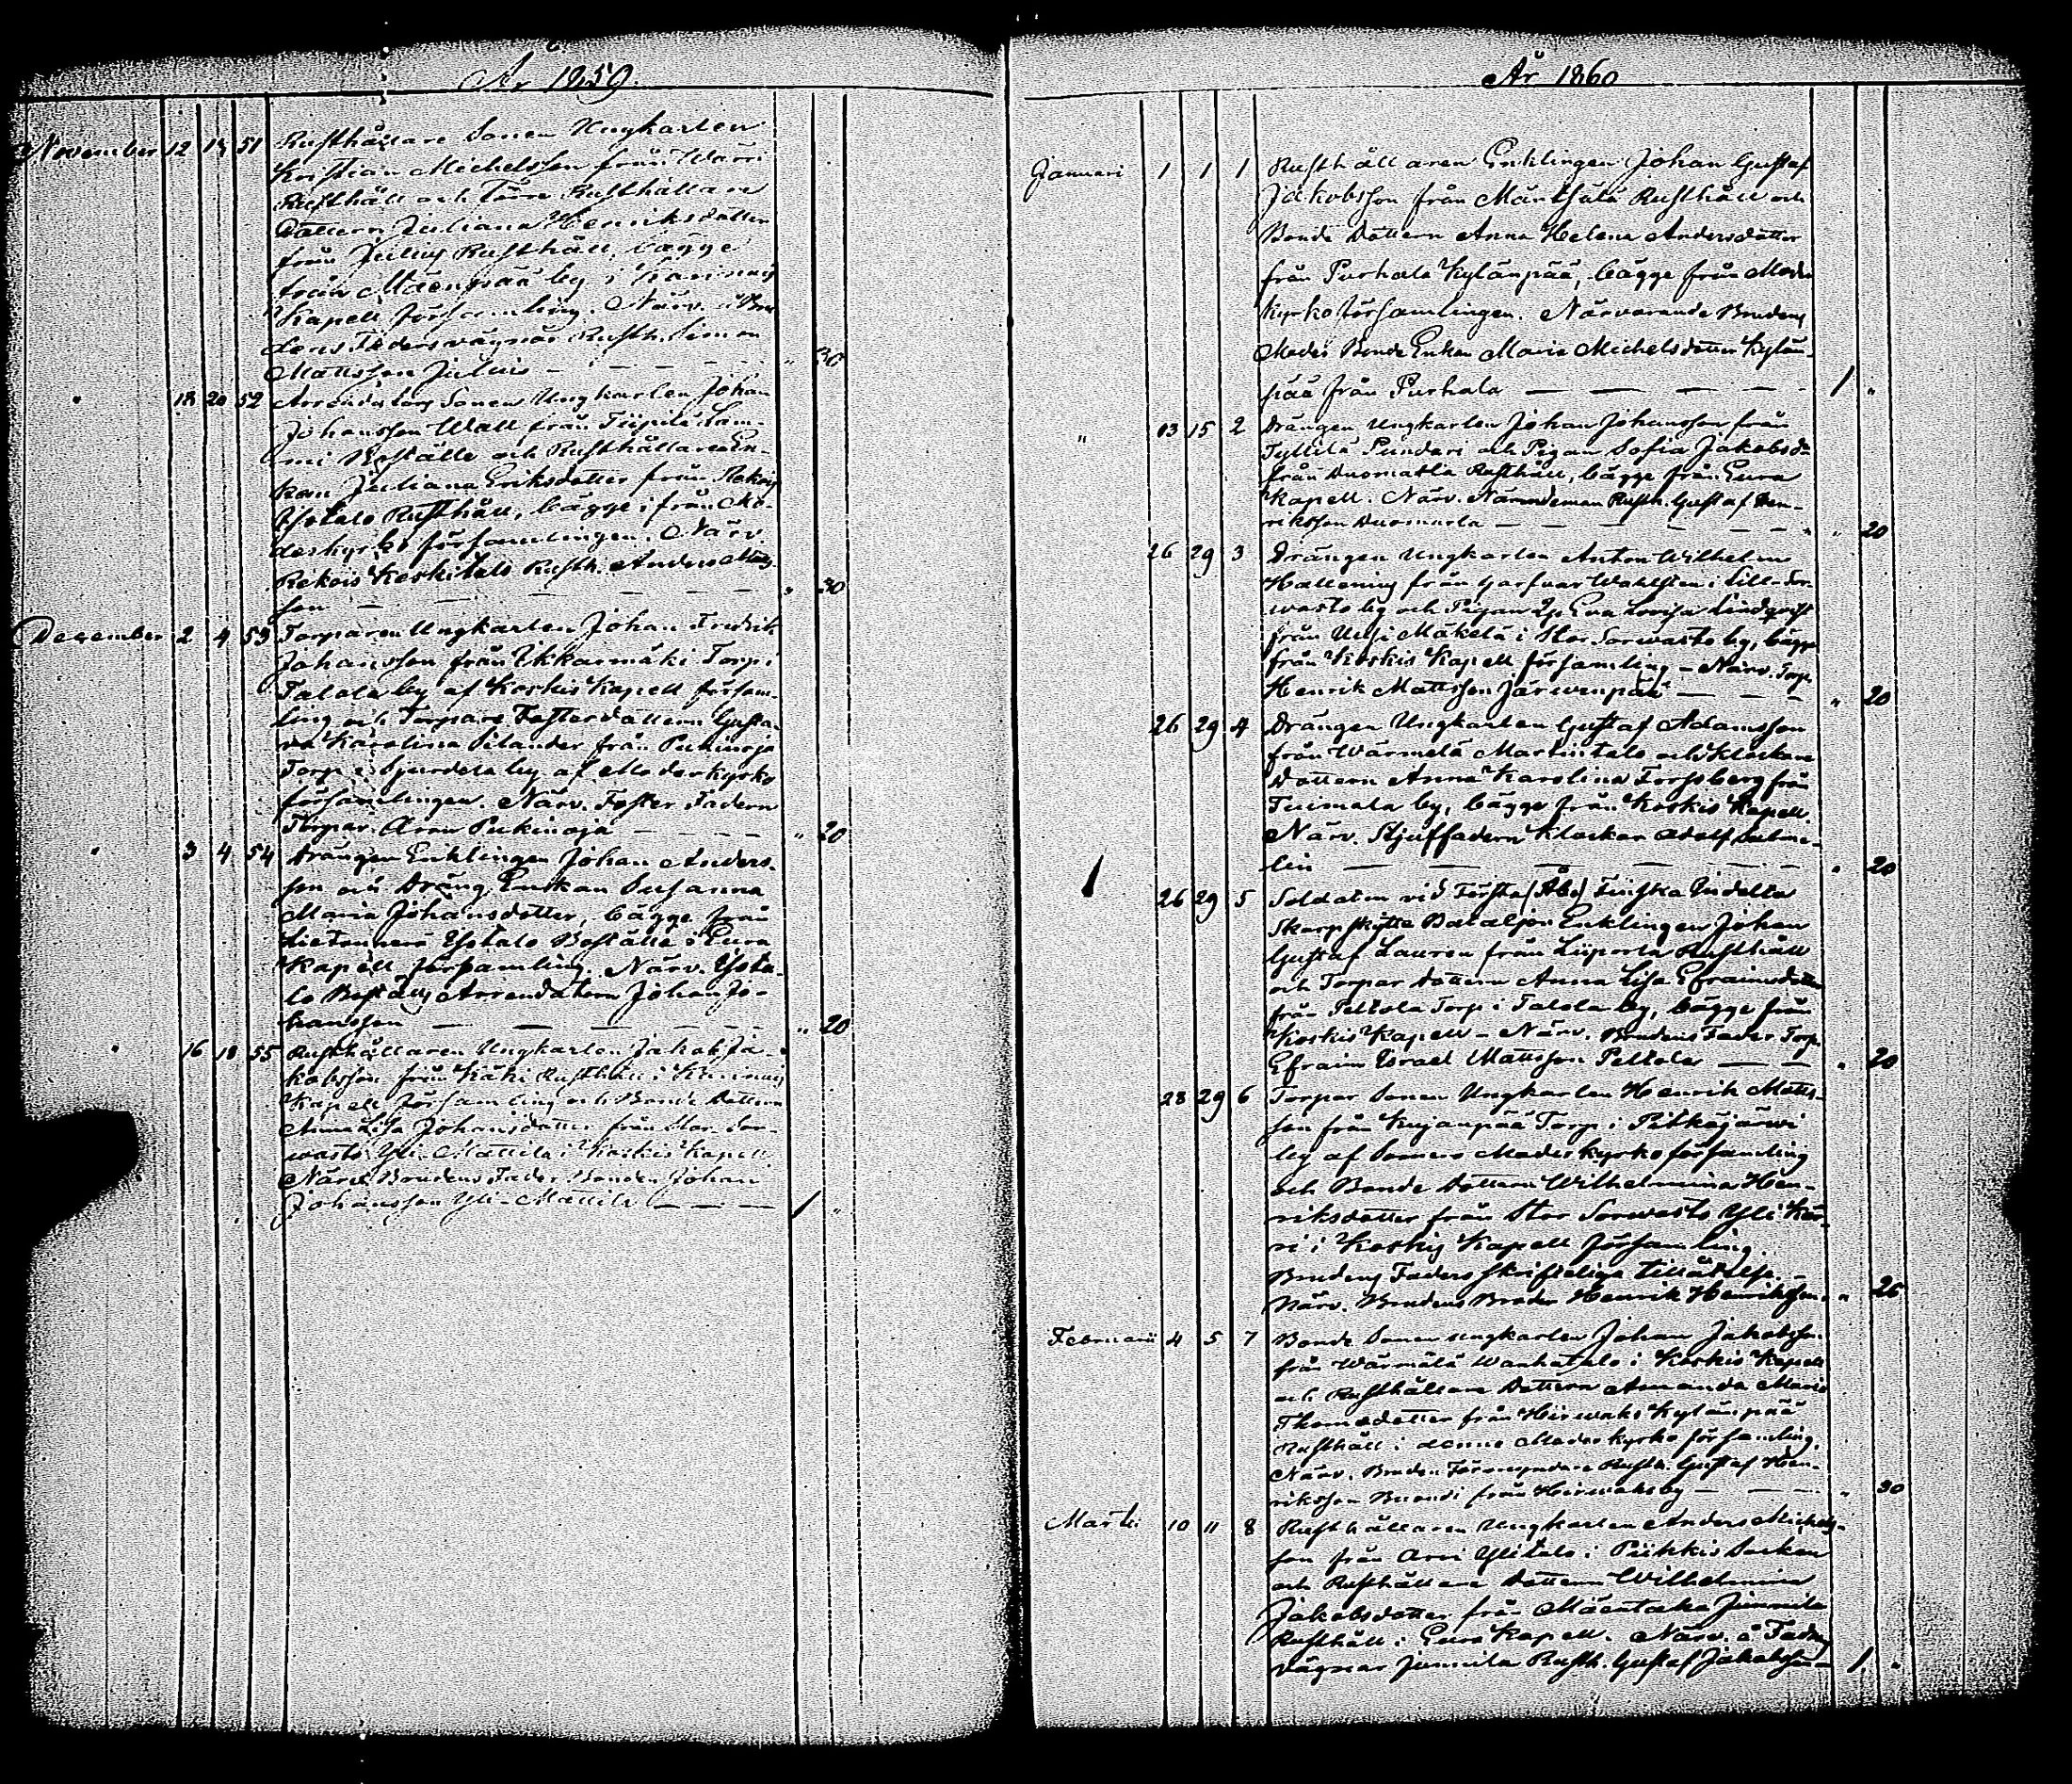 År 1859.
November 12 13 51 Rusthållare Sonen Ungkarlen
Kristian Michelsson från Warri
Rusthåll och Förre Rusthållare
Dottern Juliana Henriksdotter
från Julius Rusthåll, bägge
från Mäenpää by i Karinais
Kapell församling. Närv. å Bru
dens Faders vägnar Rusth. Simon
Mattsson Julius — — — " 30
" 18 20 52 Arrendators Sonen Ungkarlen Johan
Johansson Wall från Tiipilä Lam-
mi Boställe och Rusthållare En-
kan Juliana Eriksdotter från Rekois
Isotalo Rusthåll, bägge ifrån Mo-
derkyrko församlingen. Närv.
Rekois Keskitalo Rusth. Anders Matts-
son — — — — " 30
December 2 4 53 Torparen Ungkarlen Johan Fredrik
Johansson från Ukkarmäki Torp i
Talola by af Koskis Kapell försam-
ling och Torpare Fosterdottern Gusta-
va Karolina Silander från Pukinoja
Torp i Sjurdela by af Moderkyrko
församlingen. Närv. Foster Fadern
Torpar. Aron Pukinoja — — — " 20
" 3 4 54 Drängen Enklingen Johan Anders-
son och Dräng Enkan Susanna
Maria Johansdotter, bägge från
Isotalo Boställe i Eura
Kapell församling. Närv. Isota-
lo Boställs Arrendatorn Johan Jo-
hansson — — — — " 20
" 16 18 55 Rusthållaren Ungkarlen Jakob Ja-
kobsson från Käki Rusthåll i Karinais
Kapell församling och Bonde Dottern
Anna Lisa Johansdotter från Stor Sor-
wasto Yli-Mattila i Koskis Kapell
Närv. Brudens Fader Bonden Johan
Johansson Yli-Mattila — — — 1 "
År 1860
Januari 1 1 1 Rusthållaren Enklingen Johan Gustaf
Jakobsson från Marttila Rusthåll och
Bonde Dottern Anna Helena Andersdotter
från Purhala Kylänpää, bägge från Moder
kyrko församlingen. Närvarande Brudens
Moder Bonde Enkan Maria Michelsdotter Kylän-
pää från Purhala — — — — 1 "
" 13 15 2 Drängen Ungkarlen Johan Johansson från
Tyllilä Pundari och Pigan Sofia Jakobsd:r
från Duomarla Rusthåll, bägge från Eura
Kapell. Närv. Nämndeman Rusth. Gustaf Hen-
riksson Duomarla — — — — " 20
26 29 3 Drängen Ungkarlen Anton Wilhelm
Hallening från Garfvar Wahlsten i Lill-Sor-
wasto by och Pigan Eva Lovisa Lindqvist
från Uusi Mäkelä i Stor Sorwasto by, bägge
från Koskis Kapell församling — Närv. Torp.
Henrik Mattsson Järwenpää — — — " 20
26 29 4 Drängen Ungkarlen Gustaf Adamsson
från Wärmelä Martintalo och Klockare
Dottern Anna Karolina Forssberg från
Tuimala by, bägge från Koskis Kapell.
Närv. Stjuffadern Klockar Adolf Salme-
lin — — — — " 20
26 29 5 Soldaten vid Första (Åbo) Finska Indelta
Skarpskytte Bataljon Enklingen Johan
Gustaf Lauren från Liiporla Rusthåll
och Torpar Dottern Anna Lisa Efraimsdotter
från Peltola Torp i Talola by, bägge från
Koskis Kapell — Närv. Brudens Fader Torp.
Efraim Israel Mattsson Peltola — — " 20
28 29 6 Torpar Sonen Ungkarlen Henrik Matts-
son från Kujanpää Torp i Pitkäjärwi
by af Somero Moderkyrko församling
och Bonde Dottern Wilhelmina Hen-
riksdotter från Stor Sorwasto Yli Kär-
ri i Koskis Kapell församling.
Brudens Faders skrifteliga tillåtelse. —
Närv. Brudens Broder Henrik Henriksson. " 25
Februarii 4 5 7 Bonde Sonen Ungkarlen Johan Jakobsson
från Wärmälä Wanhatalo i Koskis Kapell
och Rusthållare Dottern Amanda Maria
Thomasdotter från Hirwaks Kylänpää
Rusthåll i denna Moderkyrko församling.
Närv. Brudens Förmyndare Rusth. Gustaf Hen-
riksson Buondi från Hirwaks by — — — " 30
Martii 10 11 8 Rusthållaren Ungkarlen Anders Michels-
son från Arvi Ylitalo i Piikkis Socken
och Rusthållare Dottern Wilhelmina
Jakobsdotter från Mäentaka Junnila
Rusthåll i Eura Kapell. Närv. å Faders
vägnar Junnila Rusth. Gustaf Jakobsson — 1 "